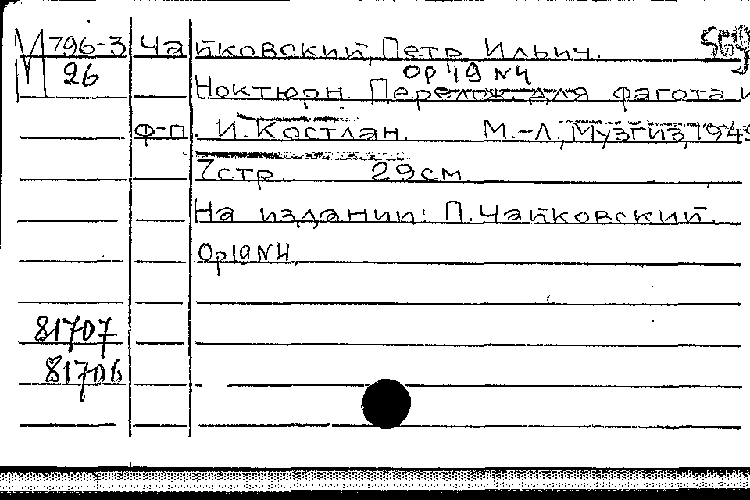 М 796-3 Чайковский, Петр Ильич. 569
26 Op 19 N4
Ноктюрн. Перелож. для фагота и
ф-п. И. Костлан. М.-Л., Музгиз, 1949
7стр 29см
На издании: П. Чайковский.
Op 19 N4.
81707
81706